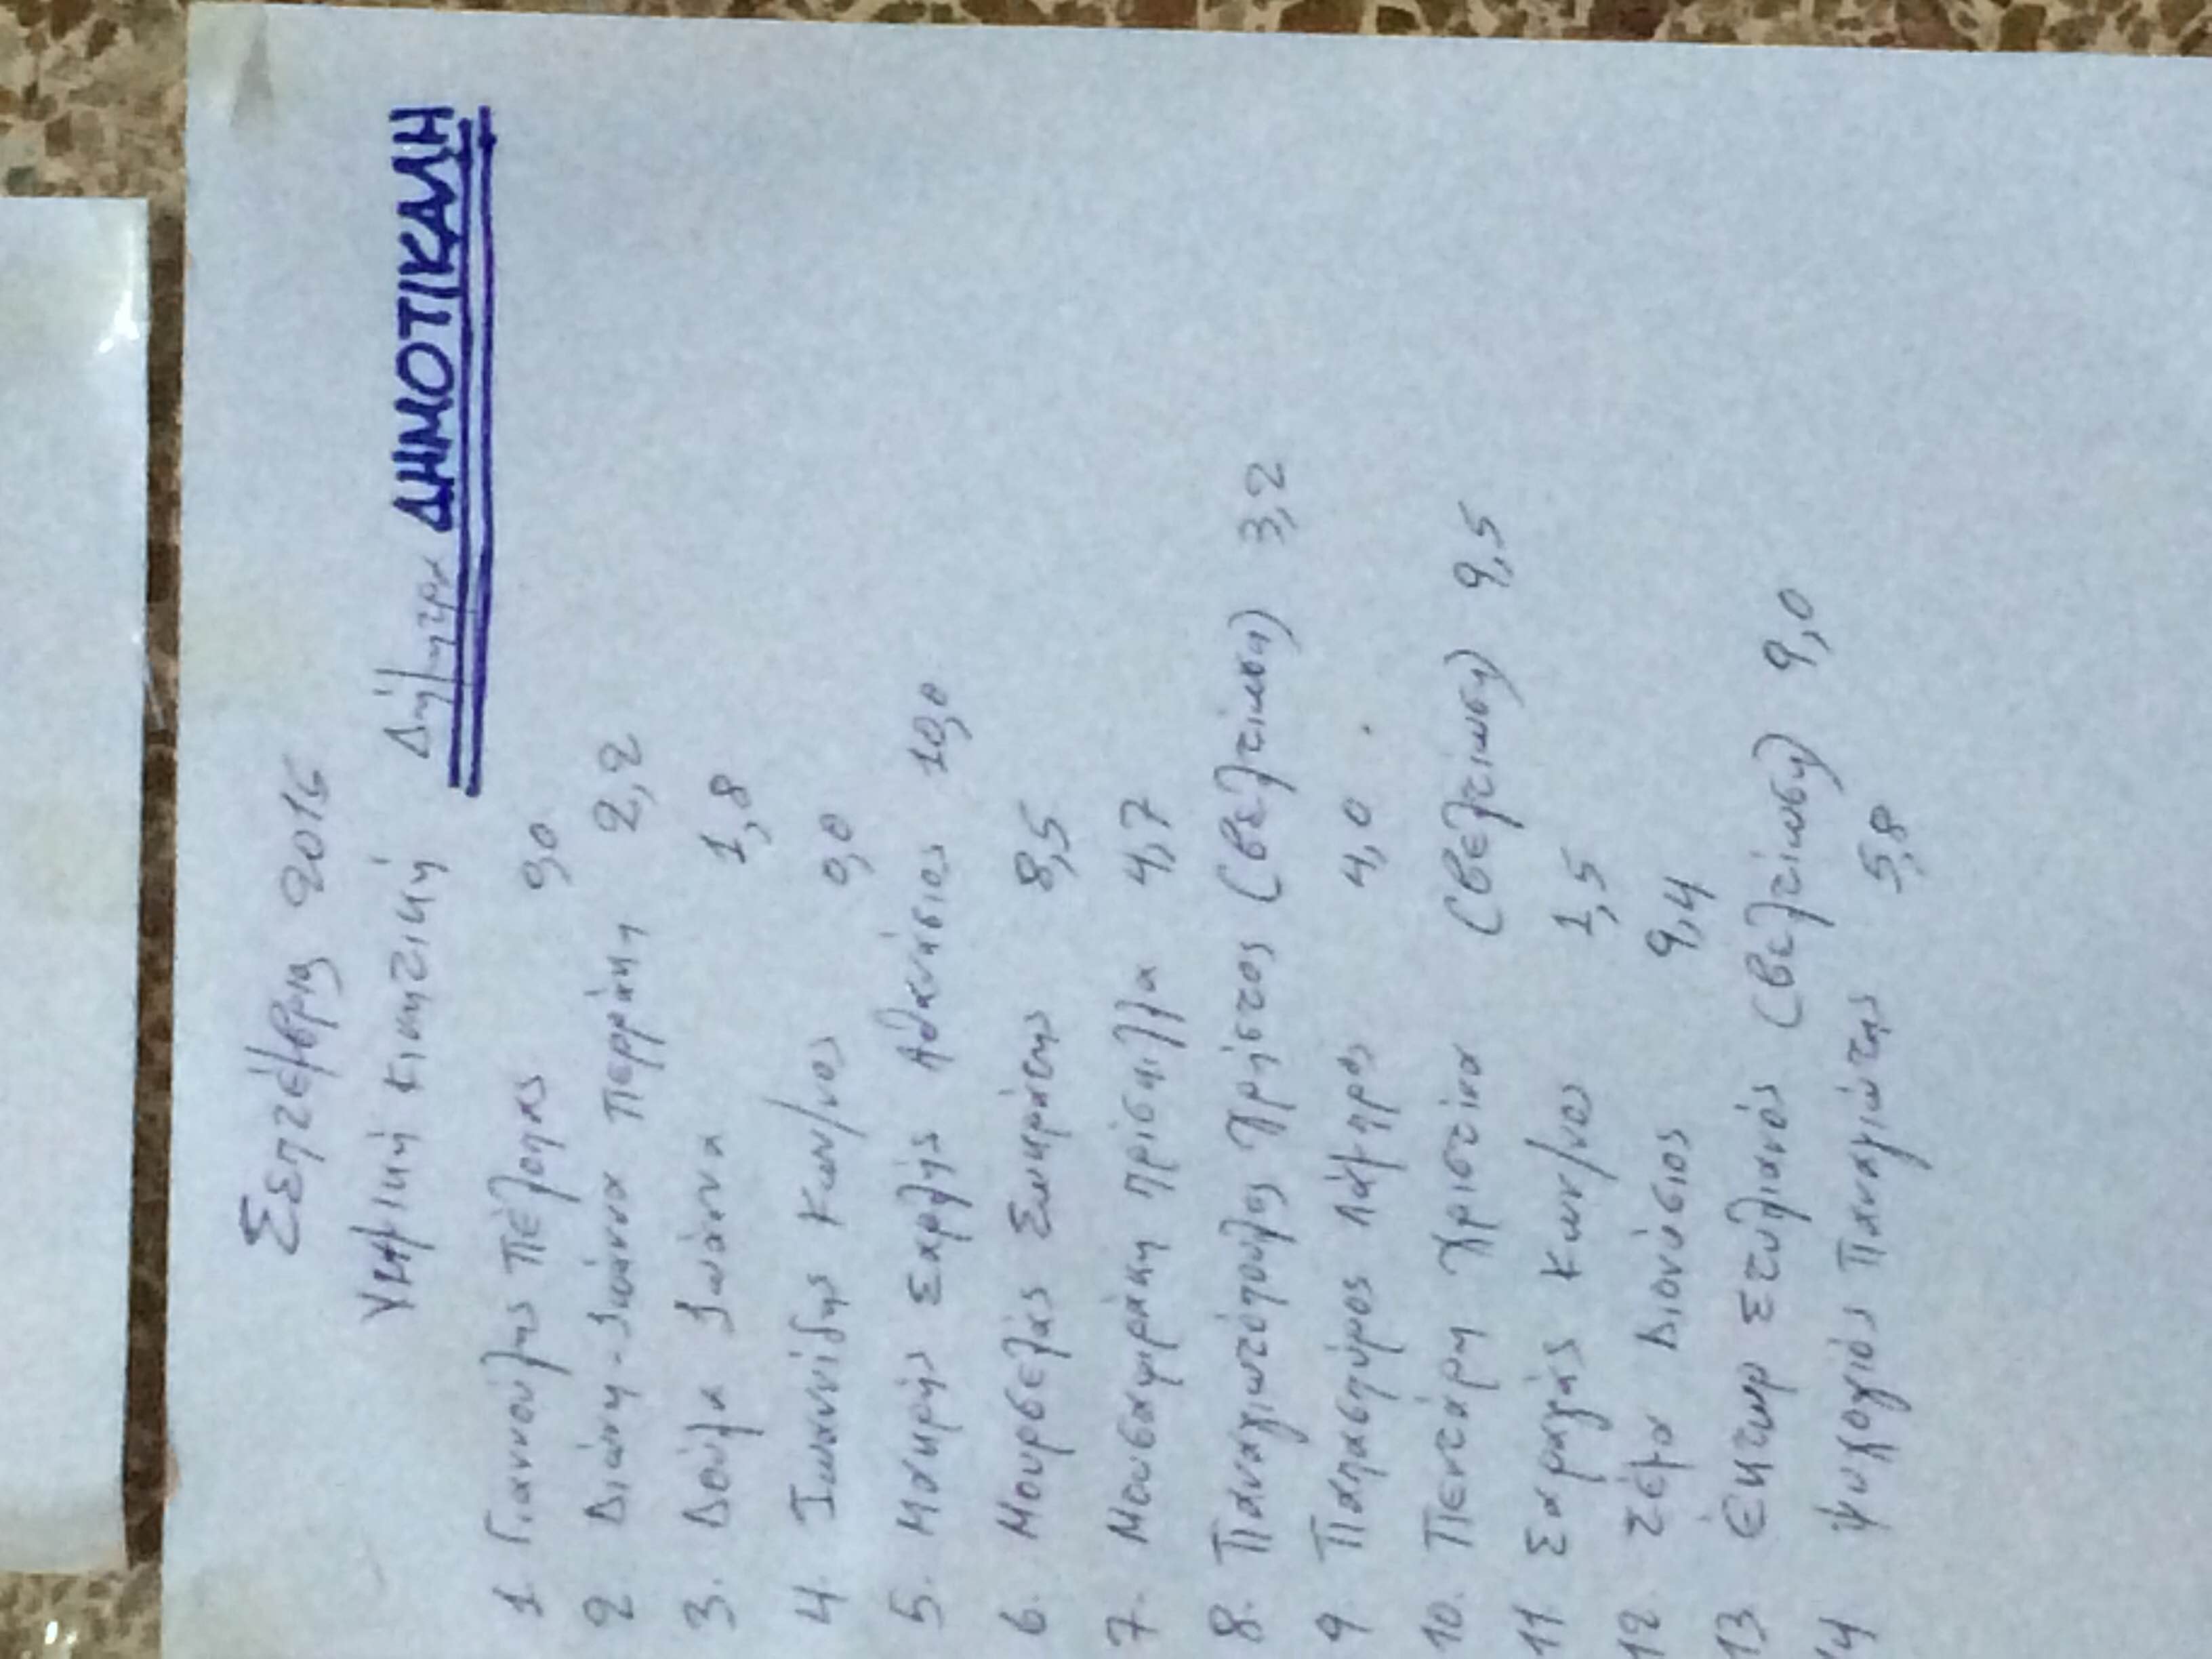 Σεπτέμβρης 2016
Χημική κινητική Δήμητρα ΔΗΜΟΤΙΚΑΛΗ
1. Γιαννούλης Πέλοπας 9,0
2. Διώνη-Ιωάννα Περράκη 2,2
3. Δούμα Ιωάννα 1,8
4. Ιωαννίδης Κων/νος 0,0
5. Μακρής Σαρλής Αθανάσιος 10,0
6. Μουρσελάς Σωκράτης 8,5
7. Μουσαφιράκη Πρίσκιλλα 4,7
8. Παναγιωτόπουλος Χρήστος (βελτίωση) 3,2
9. Παπασπύρος Λάμπρος 4,0.
10. Πεντάρη Χριστίνα (βελτίωση) 9,5
11. Σαραλής Κων/νος 1,5
12. Τέμα Διονύσιος 9,4
13. Έκτωρ Στυλιανός (βελτίωση) 9,0
14 Ψυλογιός Παναγιώτης 5,8